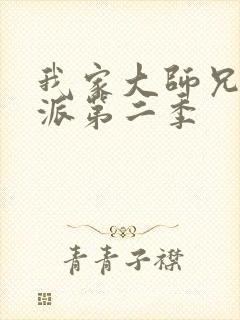 我家大師兄
派第二季
青青子襟